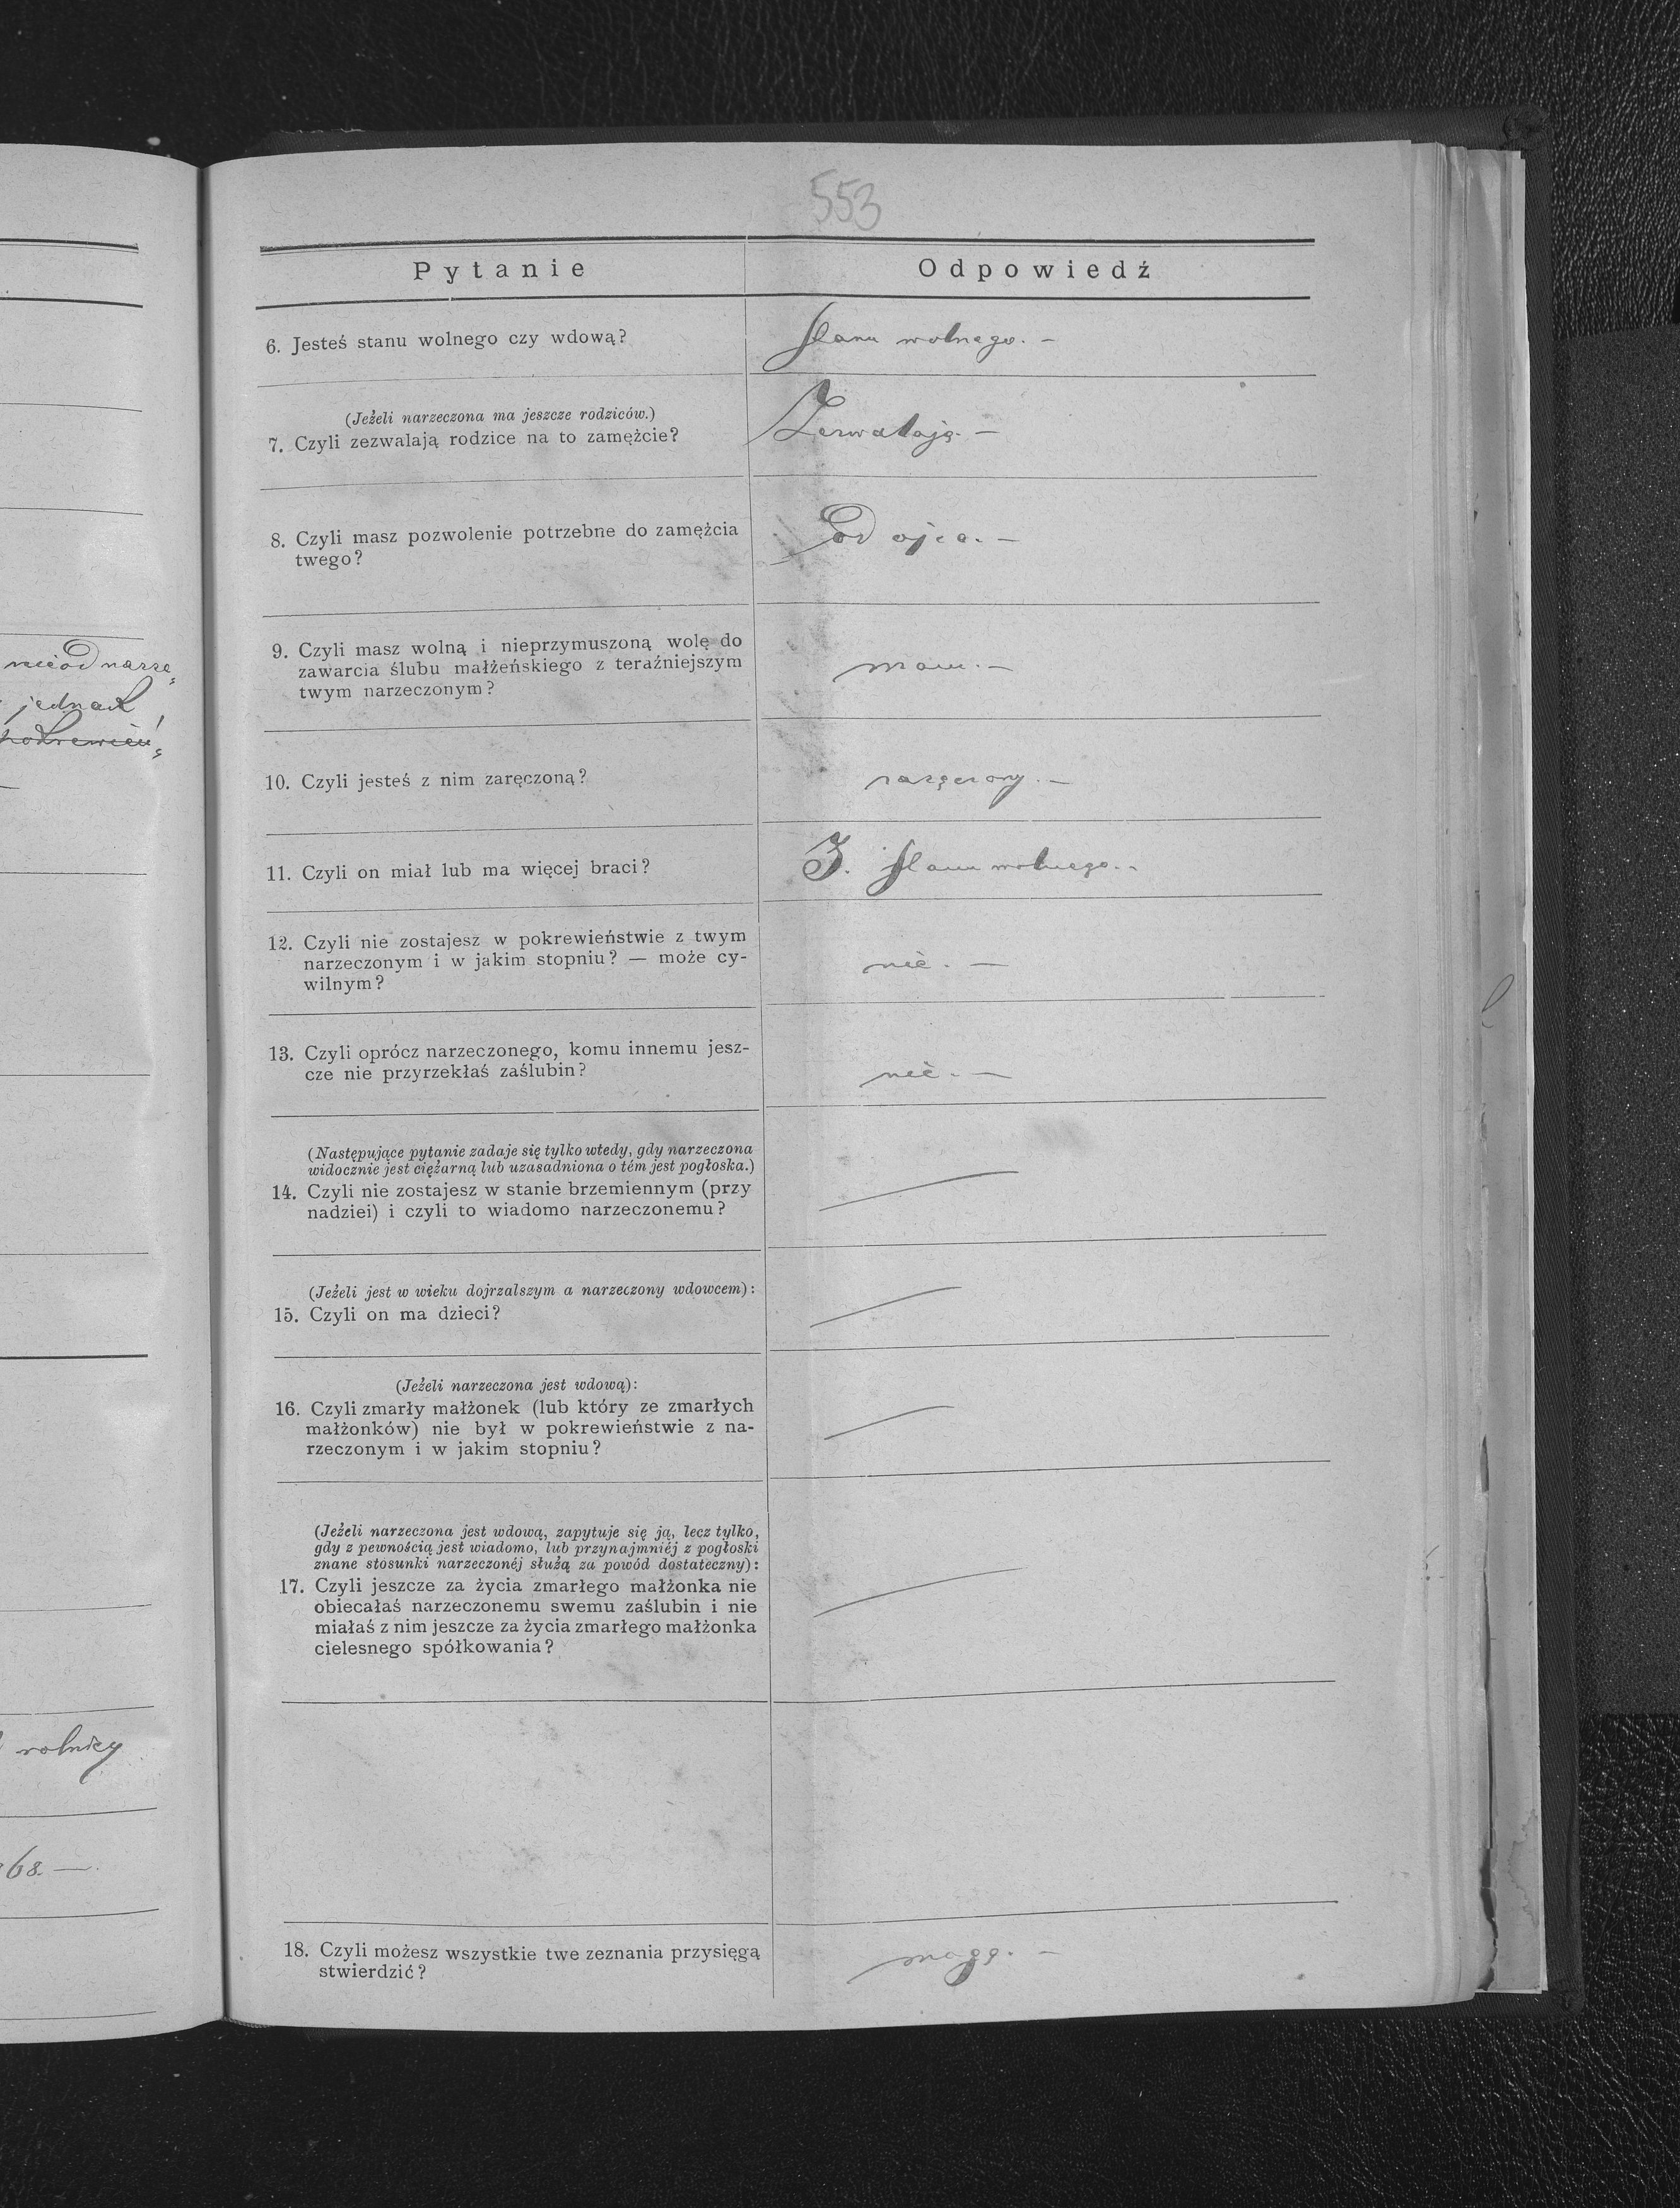 553
Pytanie
Odpowiedź
6. Jesteś stanu wolnego czy wdową?
Stanu wolnego. –
(Jeżeli narzeczona ma jeszcze rodziców.)
7. Czyli zezwalają rodzice na to zamężcie?
Zezwalają. –
8. Czyli masz pozwolenie potrzebne do zamężcia
twego?
Od ojca. –
9. Czyli masz wolną i nieprzymuszoną wolę do
zawarcia ślubu małżeńskiego z teraźniejszym
twym narzeczonym?
mam. –
10. Czyli jesteś z nim zaręczoną?
11. Czyli on miał lub ma więcej braci?
3. stanu wolnego. –
12. Czyli nie zostajesz w pokrewieństwie z twym
narzeczonym i w jakim stopniu? — może cy-
wilnym?
nie. —
13. Czyli oprócz narzeczonego, komu innemu jesz-
cze nie przyrzekłaś zaślubin?
nie. —
(Następujące pytanie zadaje się tylko wtedy, gdy narzeczona
widocznie jest ciężarną lub uzasadniona o tém jest pogłoska.)
14. Czyli nie zostajesz w stanie brzemiennym (przy
nadziei) i czyli to wiadomo narzeczonemu?
(Jeżeli jest w wieku dojrzalszym a narzeczony wdowcem):
15. Czyli on ma dzieci?
(Jeżeli narzeczona jest wdową):
16. Czyli zmarły małżonek (lub który ze zmarłych
małżonków) nie był w pokrewieństwie z na-
rzeczonym i w jakim stopniu?
(Jeżeli narzeczona jest wdową, zapytuje się ją, lecz tylko,
gdy z pewnością jest wiadomo, lub przynajmniéj z pogłoski
znane stosunki narzeczonéj służą za powód dostateczny):
17. Czyli jeszcze za życia zmarłego małżonka nie
obiecałaś narzeczonemu swemu zaślubin i nie
miałaś z nim jeszcze za życia zmarłego małżonka
cielesnego spółkowania?
18. Czyli możesz wszystkie twe zeznania przysięgą
stwierdzić?
mogę. –
jednak
rolnicy
68. —